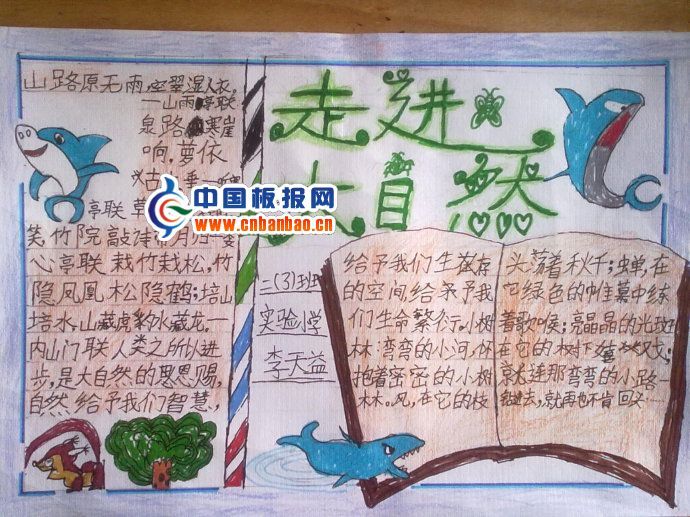 走进
大自然
山路原无雨,空翠湿人衣。
一山雨亭联
泉路寒崖
响,萝依
古
中国板报网
www.cnbanbao.cn
亭联
笑,竹院敲
心亭联 栽竹栽松,竹
隐凤凰松隐鹤;培山
培水,山藏虎豹水藏龙。一
内山门联 人类之所以进
步,是大自然的恩赐,
自然给予我们智慧,
二(3)班
实验小学
李天益
给予我们生存
的空间,给予我
们生命繁衍。小树
林弯弯的小河,怀
抱着密密的小树
林。风,在它的枝
头荡着秋千;蝉,在
它绿色的帷幕中练
着歌喉;亮晶晶的光斑
在它的树下
就连那弯弯的小路一
进去,就再也不肯回头…